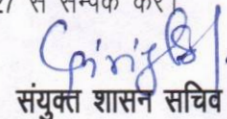 से सम्पर्क करें
संयुक्त शासन सचिव